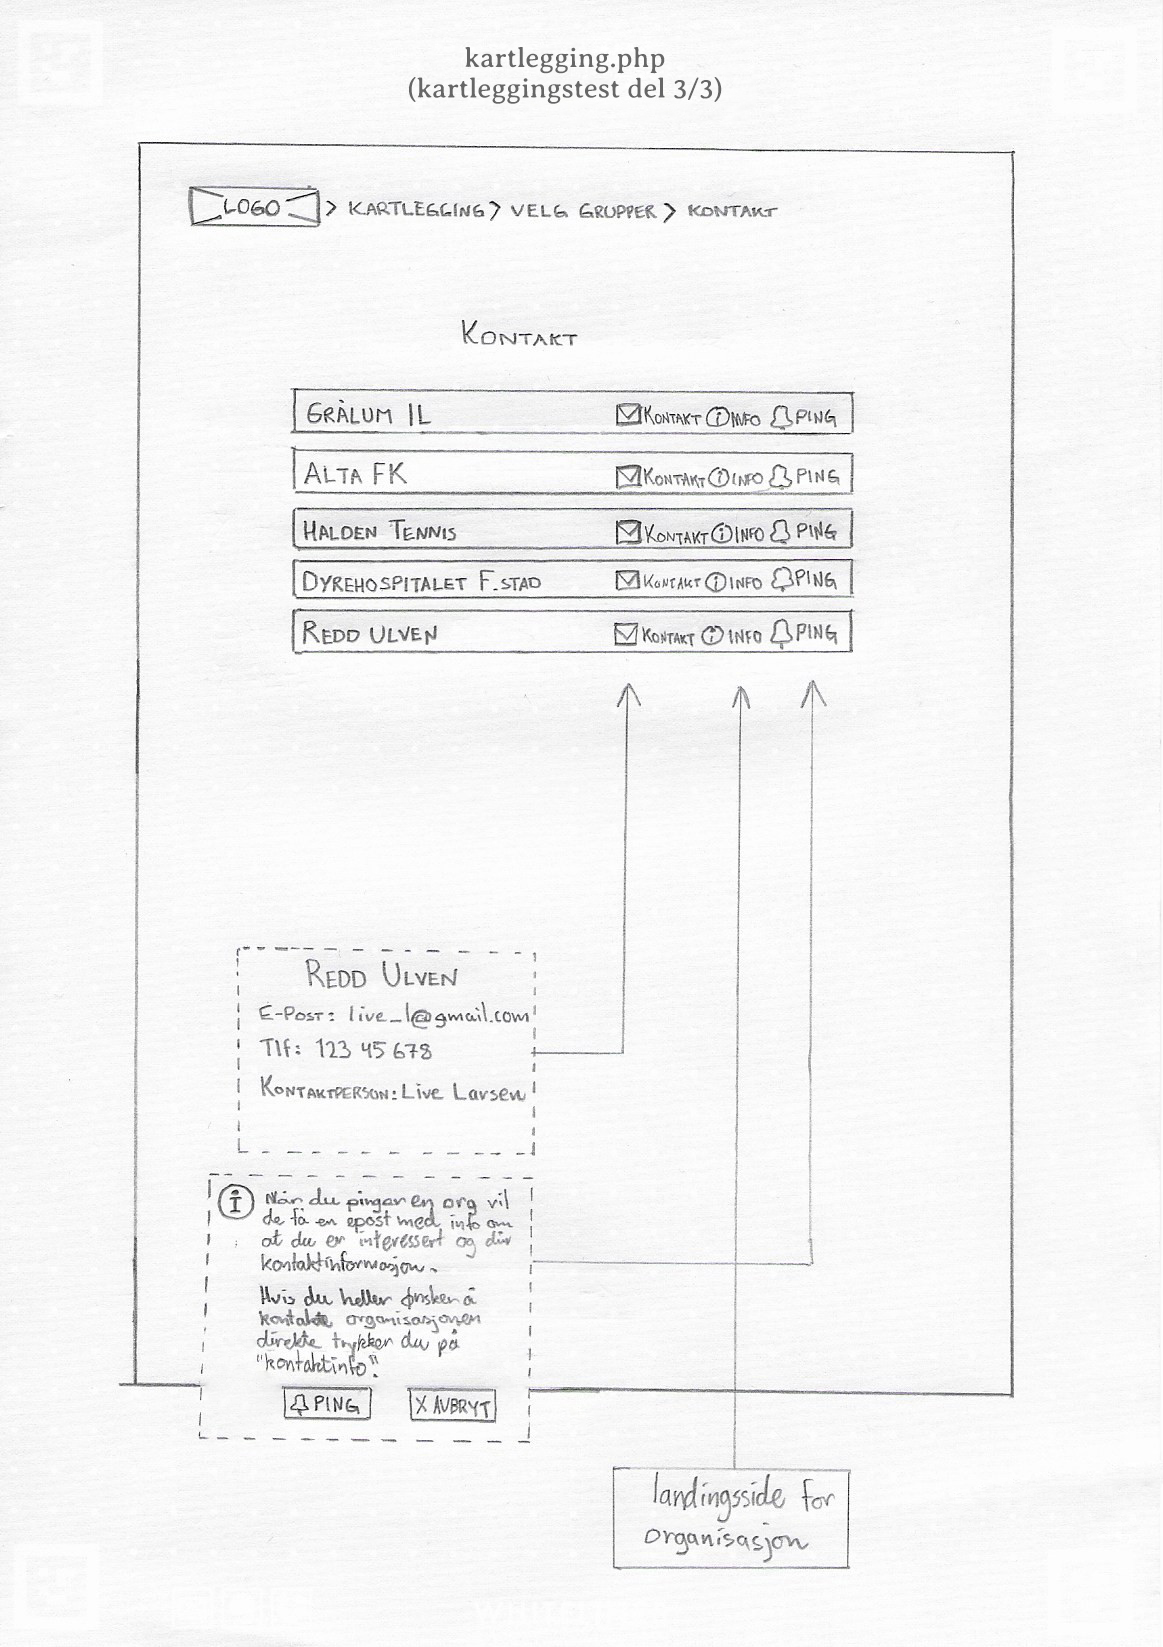 kartlegging.php
(kartleggingstest del 3/3)
LOGO > KARTLEGGING > VELG GRUPPER > KONTAKT
KONTAKT
GRÅLUM IL KONTAKT INFO PING
ALTA FK KONTAKT INFO PING
HALDEN TENNIS KONTAKT INFO PING
DYREHOSPITALET F.STAD KONTAKT INFO PING
REDD ULVEN KONTAKT INFO PING
REDD ULVEN
E-POST: live_l@gmail.com
Tlf: 123 45 678
KONTAKTPERSON: Live Larsen
i Når du pinger en org vil
de få en epost med info om
at du er interessert og din
kontaktinformasjon.
Hvis du heller ønsker å
kontakte organisasjonen
direkte trykker du på
"kontaktinfo".
PING X AVBRYT
landingsside for
organisasjon